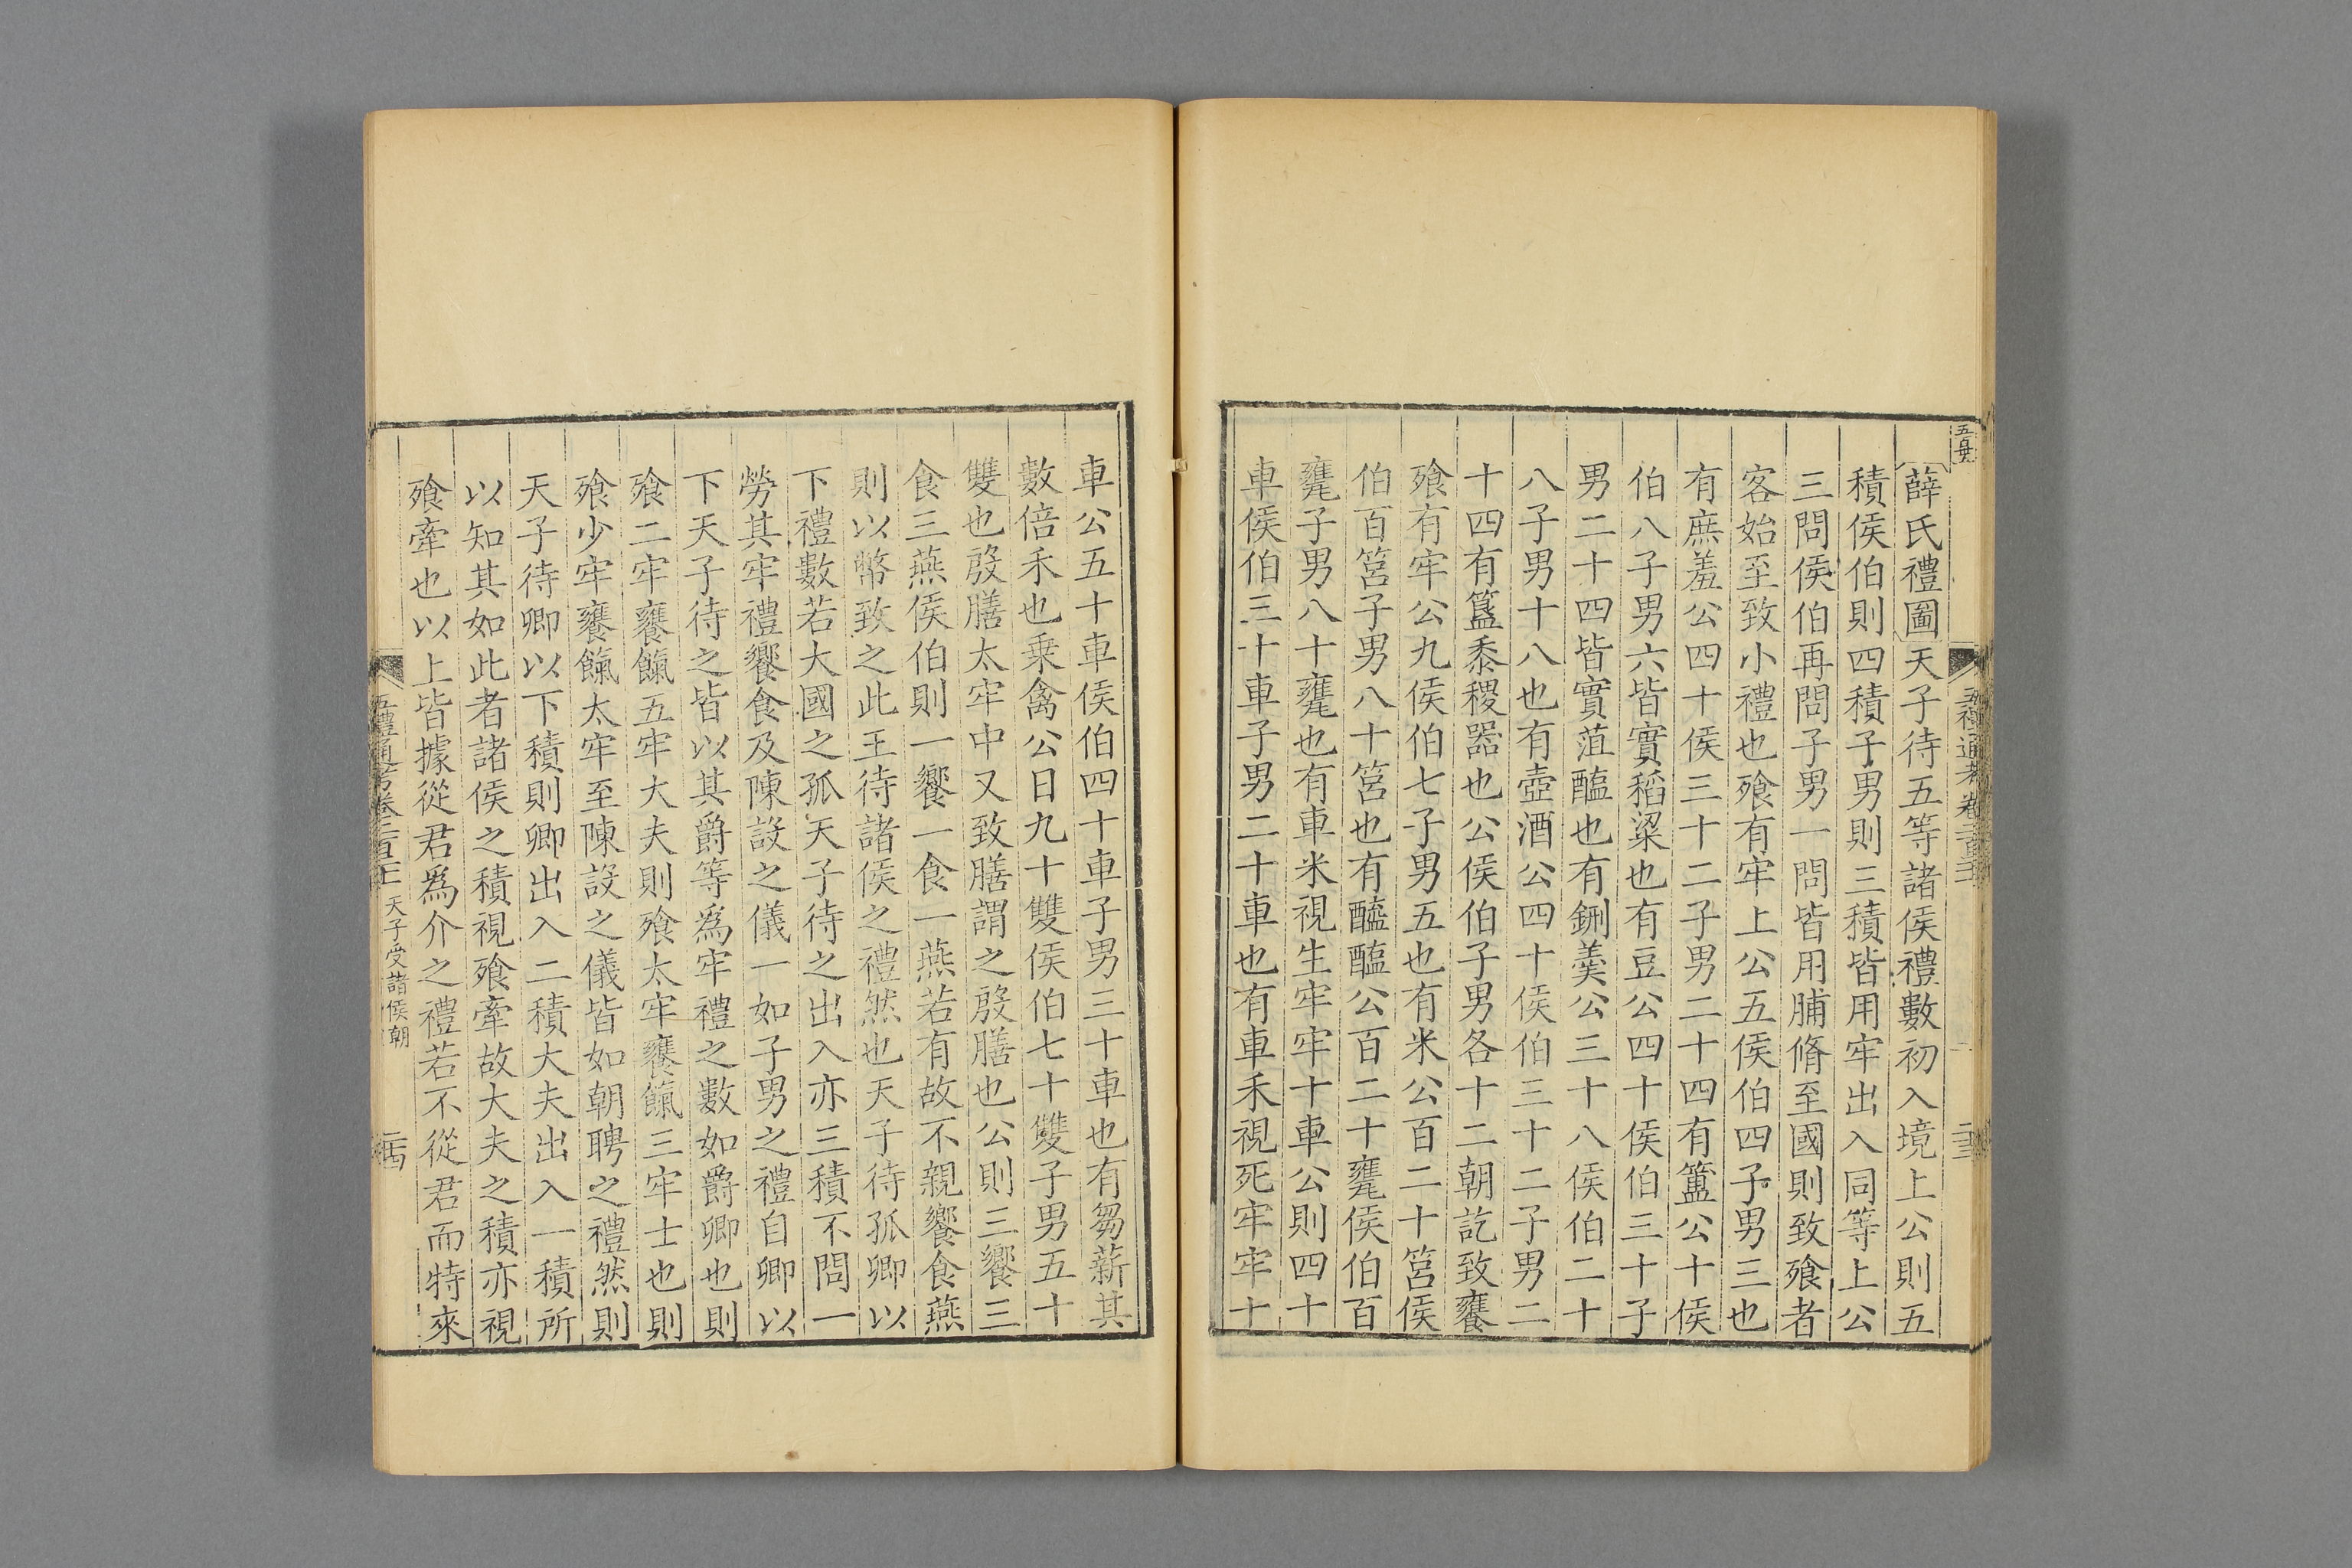 薛氏禮圖天子待五等諸侯禮數初入境上公則五
積侯伯則四積子男則三積皆用牢出入同等上公
三問侯伯再問子男一問皆用脯脩至國則致飱者
客始至致小禮也飱有牢上公五侯伯四子男三也
有庶羞公四十侯三十二子男二十四有簠公十侯
伯八子男六皆實稻粱也有豆公四十侯伯三十子
男二十四皆實菹醢也有鉶羹公三十八侯伯二十
八子男十八也有壺酒公四十侯伯三十二子男二
十四有簋黍稷器也公侯伯子男各十二朝訖致饔
飱有牢公九侯伯七子男五也有米公百二十筥侯
伯百筥子男八十筥也有醯醢公百二十甕侯伯百
甕子男八十甕也有車米視生牢牢十車公則四十
車侯伯三十車子男二十車也有車禾視死牢牢十
車公五十車侯伯四十車子男三十車也有芻薪其
數倍禾也乗禽公日九十雙侯伯七十雙子男五十
雙也殷膳太牢中又致膳謂之殷膳也公則三饗三
食三燕侯伯則一饗一食一燕若有故不親饗食燕
則以幣致之此王待諸侯之禮然也天子待孤卿以
下禮數若大國之孤天子待之出入亦三積不問一
勞其牢禮饗食及陳設之儀一如子男之禮自卿以
下天子待之皆以其爵等爲牢禮之數如爵卿也則
飱二牢饔餼五牢大夫則飱太牢饔餼三牢士也則
飱少牢饔餼太牢至陳設之儀皆如朝聘之禮然則
天子待卿以下積則卿出入二積大夫出入一積所
以知其如此者諸侯之積視飱牽故大夫之積亦視
飱牽也以上皆據從君爲介之禮若不從君而特來
五禮通考卷二百二十 天子受諸侯朝